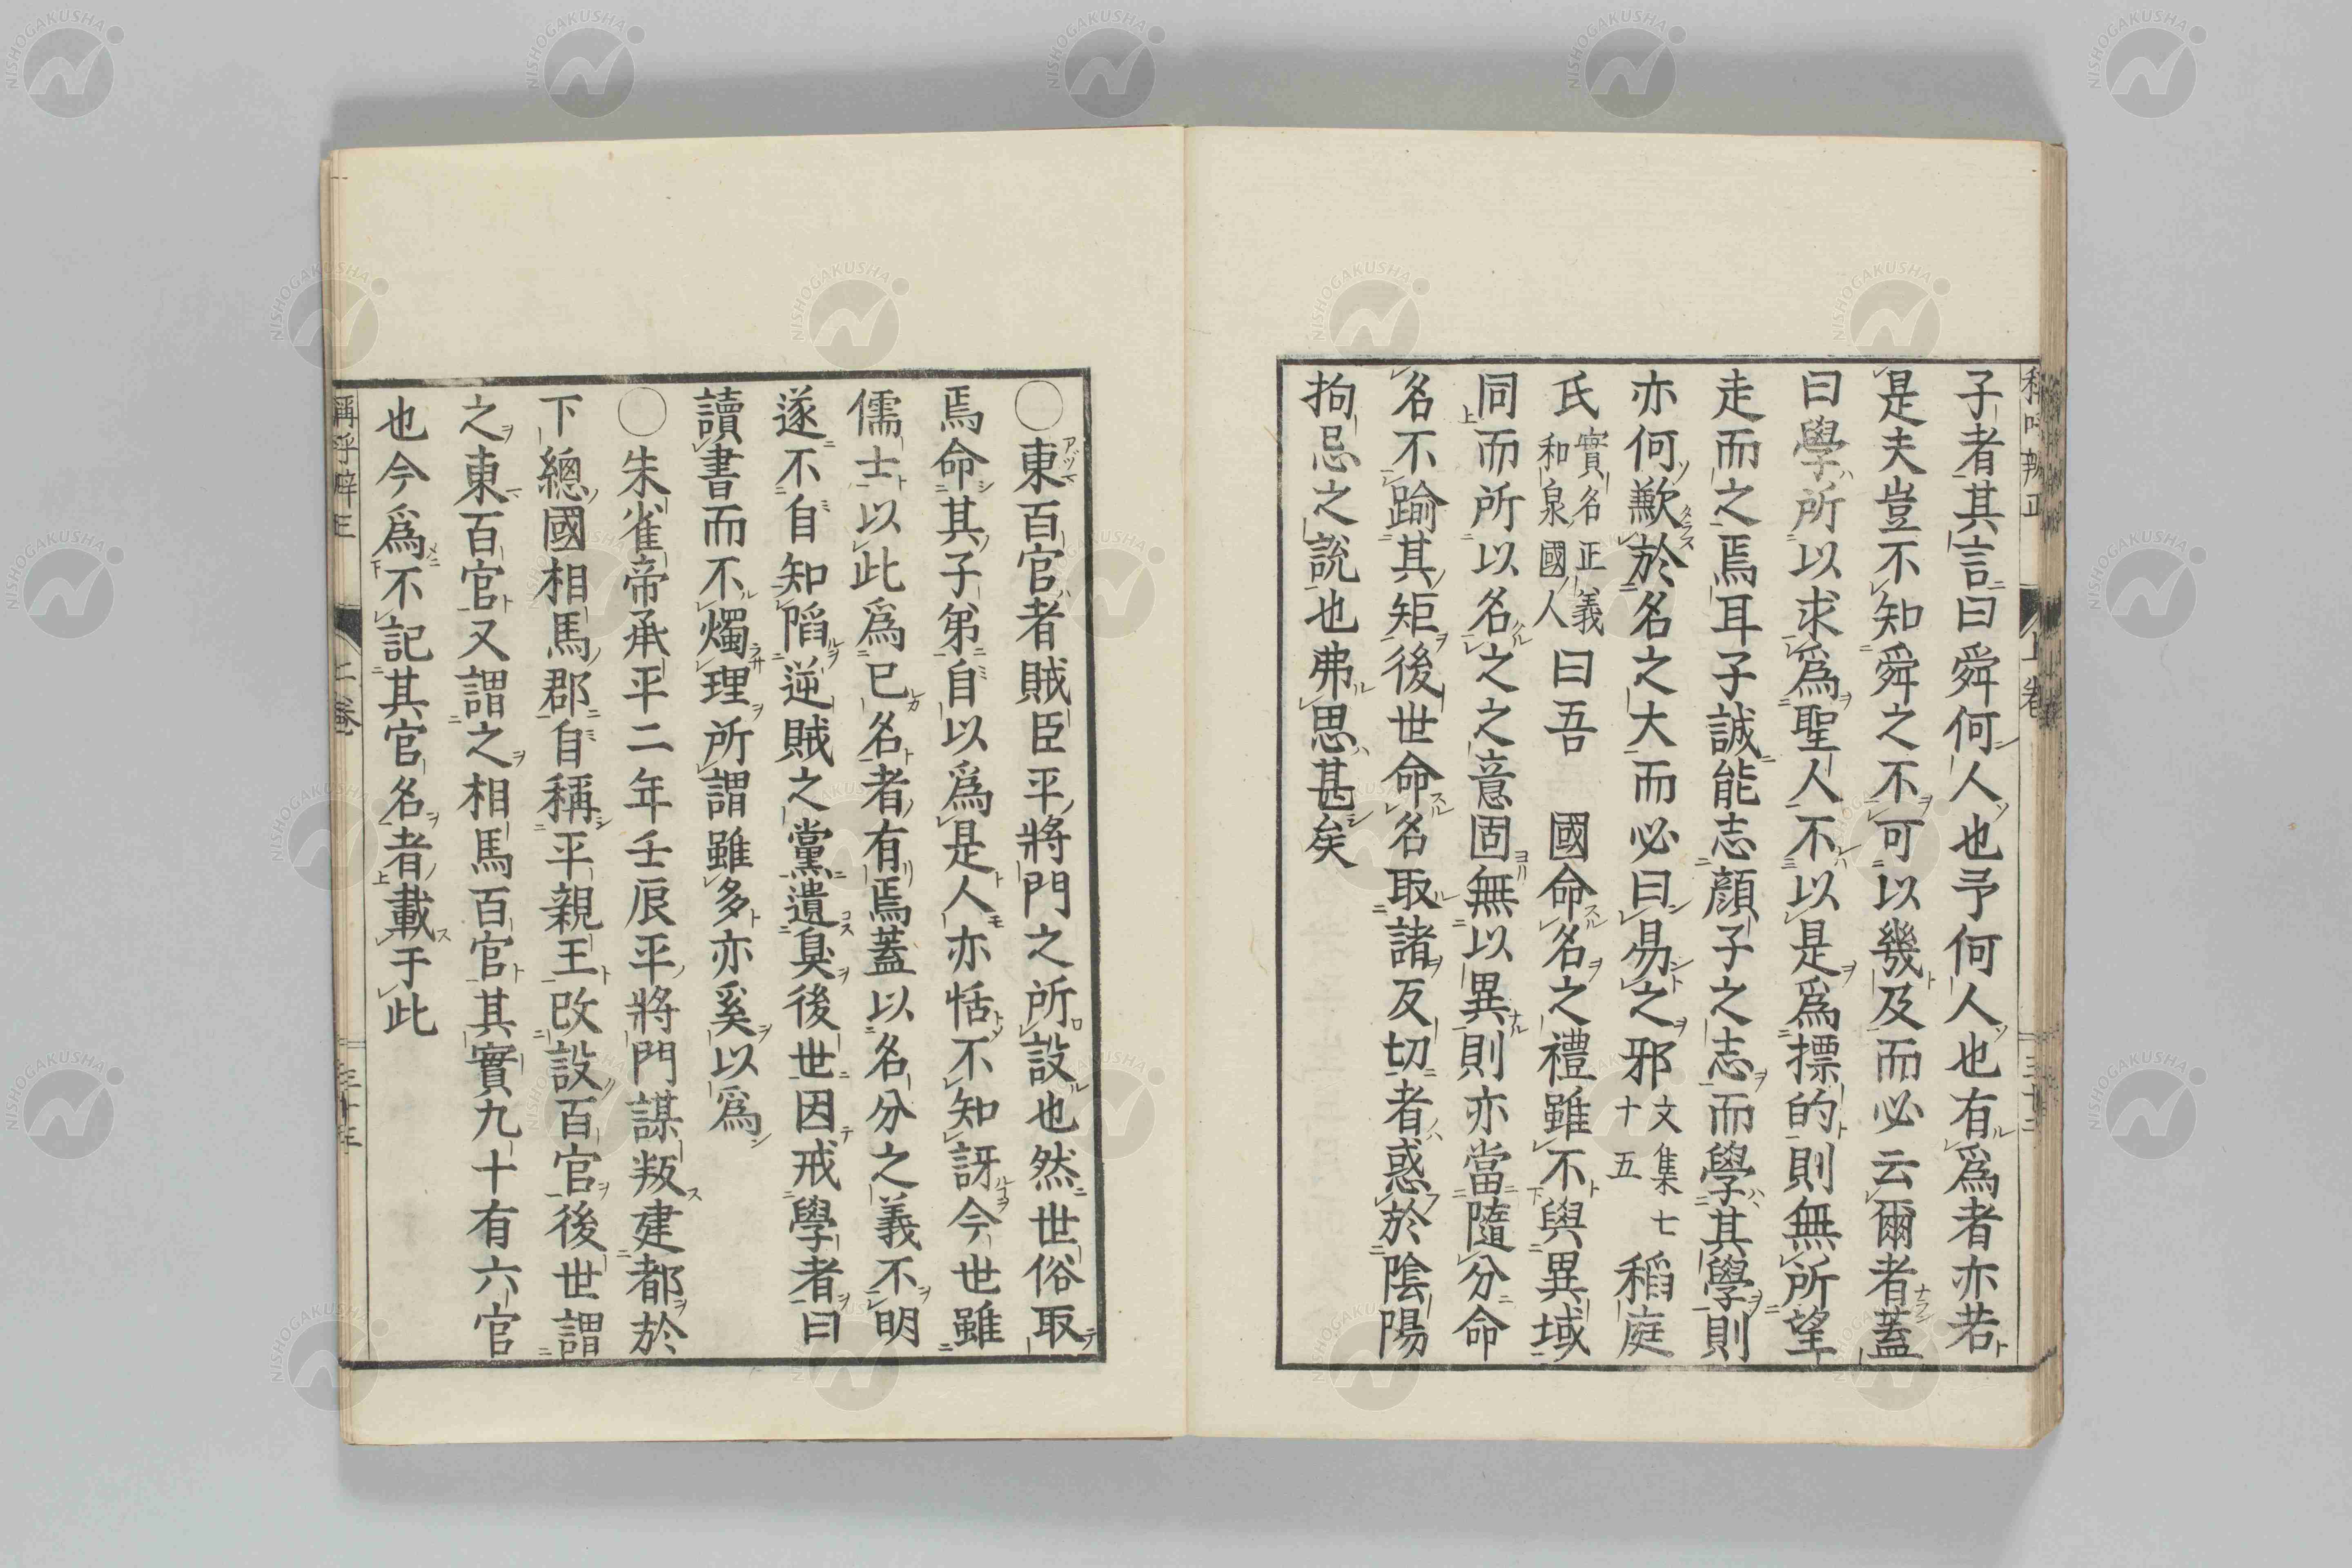 子者其言曰舜何人也予何人也有爲者亦若
是夫豈不知舜之不可以幾及而必云爾者蓋
曰學所以求爲聖人不以是爲標的則無所望
走而之焉耳子誠能志顔子之志而學其學則
亦何歉於名之大而必曰易之邪文集七十五稻庭
氏實名正義和泉國人曰吾　國命名之禮雖不與異域
同而所以名之之意固無以異則亦當隨分命
名不踰其矩後世命名取諸反切者惑於陰陽
拘忌之説也弗思甚矣
〇東百官者賊臣平將門之所設也然世俗取
焉命其子弟自以爲是人亦恬不知訝今世雖
儒士以此爲己名者有焉蓋以名分之義不明
遂不自知陷逆賊之黨遺臭後世因戒學者曰
讀書而不燭理所謂雖多亦奚以爲
〇朱雀帝承平二年壬辰平將門謀叛建都於
下總國相馬郡自稱平親王改設百官後世謂
之東百官又謂之相馬百官其實九十有六官
也今爲不記其官名者載于此
NISHOGAKUSHA